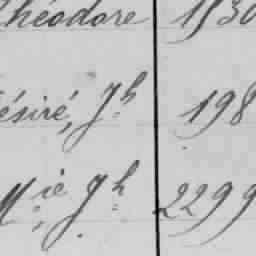 Théodore, 1530
ésiré, Jh 198
Mie Jh 2299